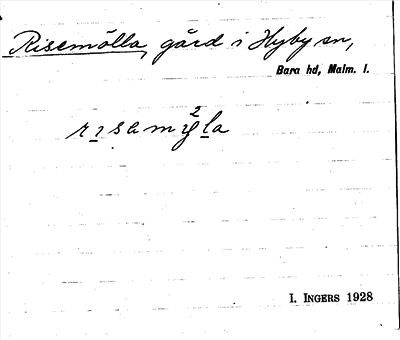 Risemölla, gård i Hyby sn,
Bara hd, Malm. l.
I. INGERS 1928